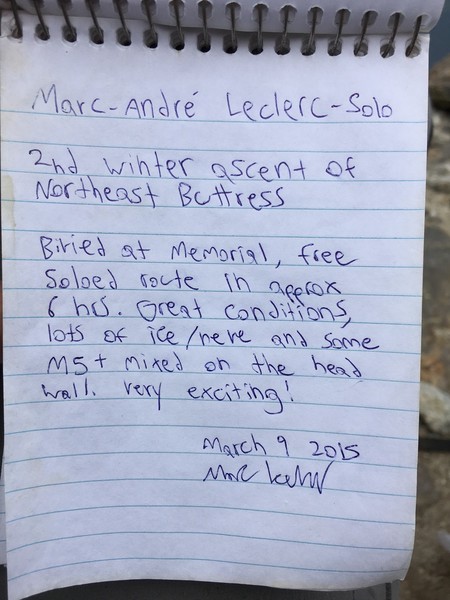 Marc-André Leclerc-Solo
2nd winter ascent of
Northeast Buttress
Bivied at Memorial, free
Soloed route in approx
6 hrs. Great conditions,
lots of ice/neve and some
M5+ mixed on the head
wall. very exciting!
March 9 2015